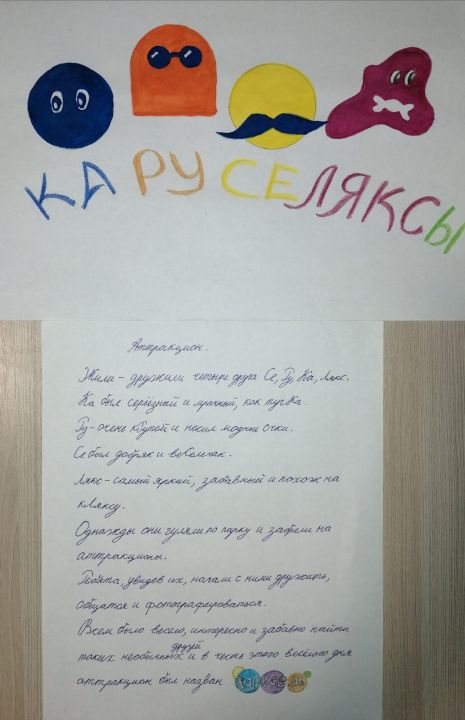 КАРУСЕЛЯКСЫ
Аттракцион.
Жили - дружили четыре друга Се, Ру, Ка, Лякс.
Ка был серьёзный и мрачный, как тучКа.
Ру - очень кРутой и носил модные очки.
Се был добряк и веСельчак.
Лякс - самый яркий, забавный и похож на
кЛяксу.
Однажды они гуляли по парку и забрели на
аттракционы.
Ребята, увидев их, начали с ними дружить,
общатся и фоттрафероваться.
Всем было весело, интересно и забавно найти
друзей
таких необычных и в честь этого веселого дня
аттракцион был назван карусель